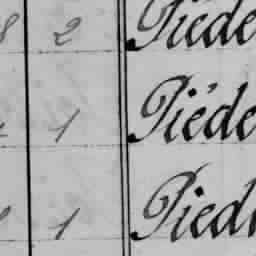 8 2 Piede
1 Piéde
1 Piedi